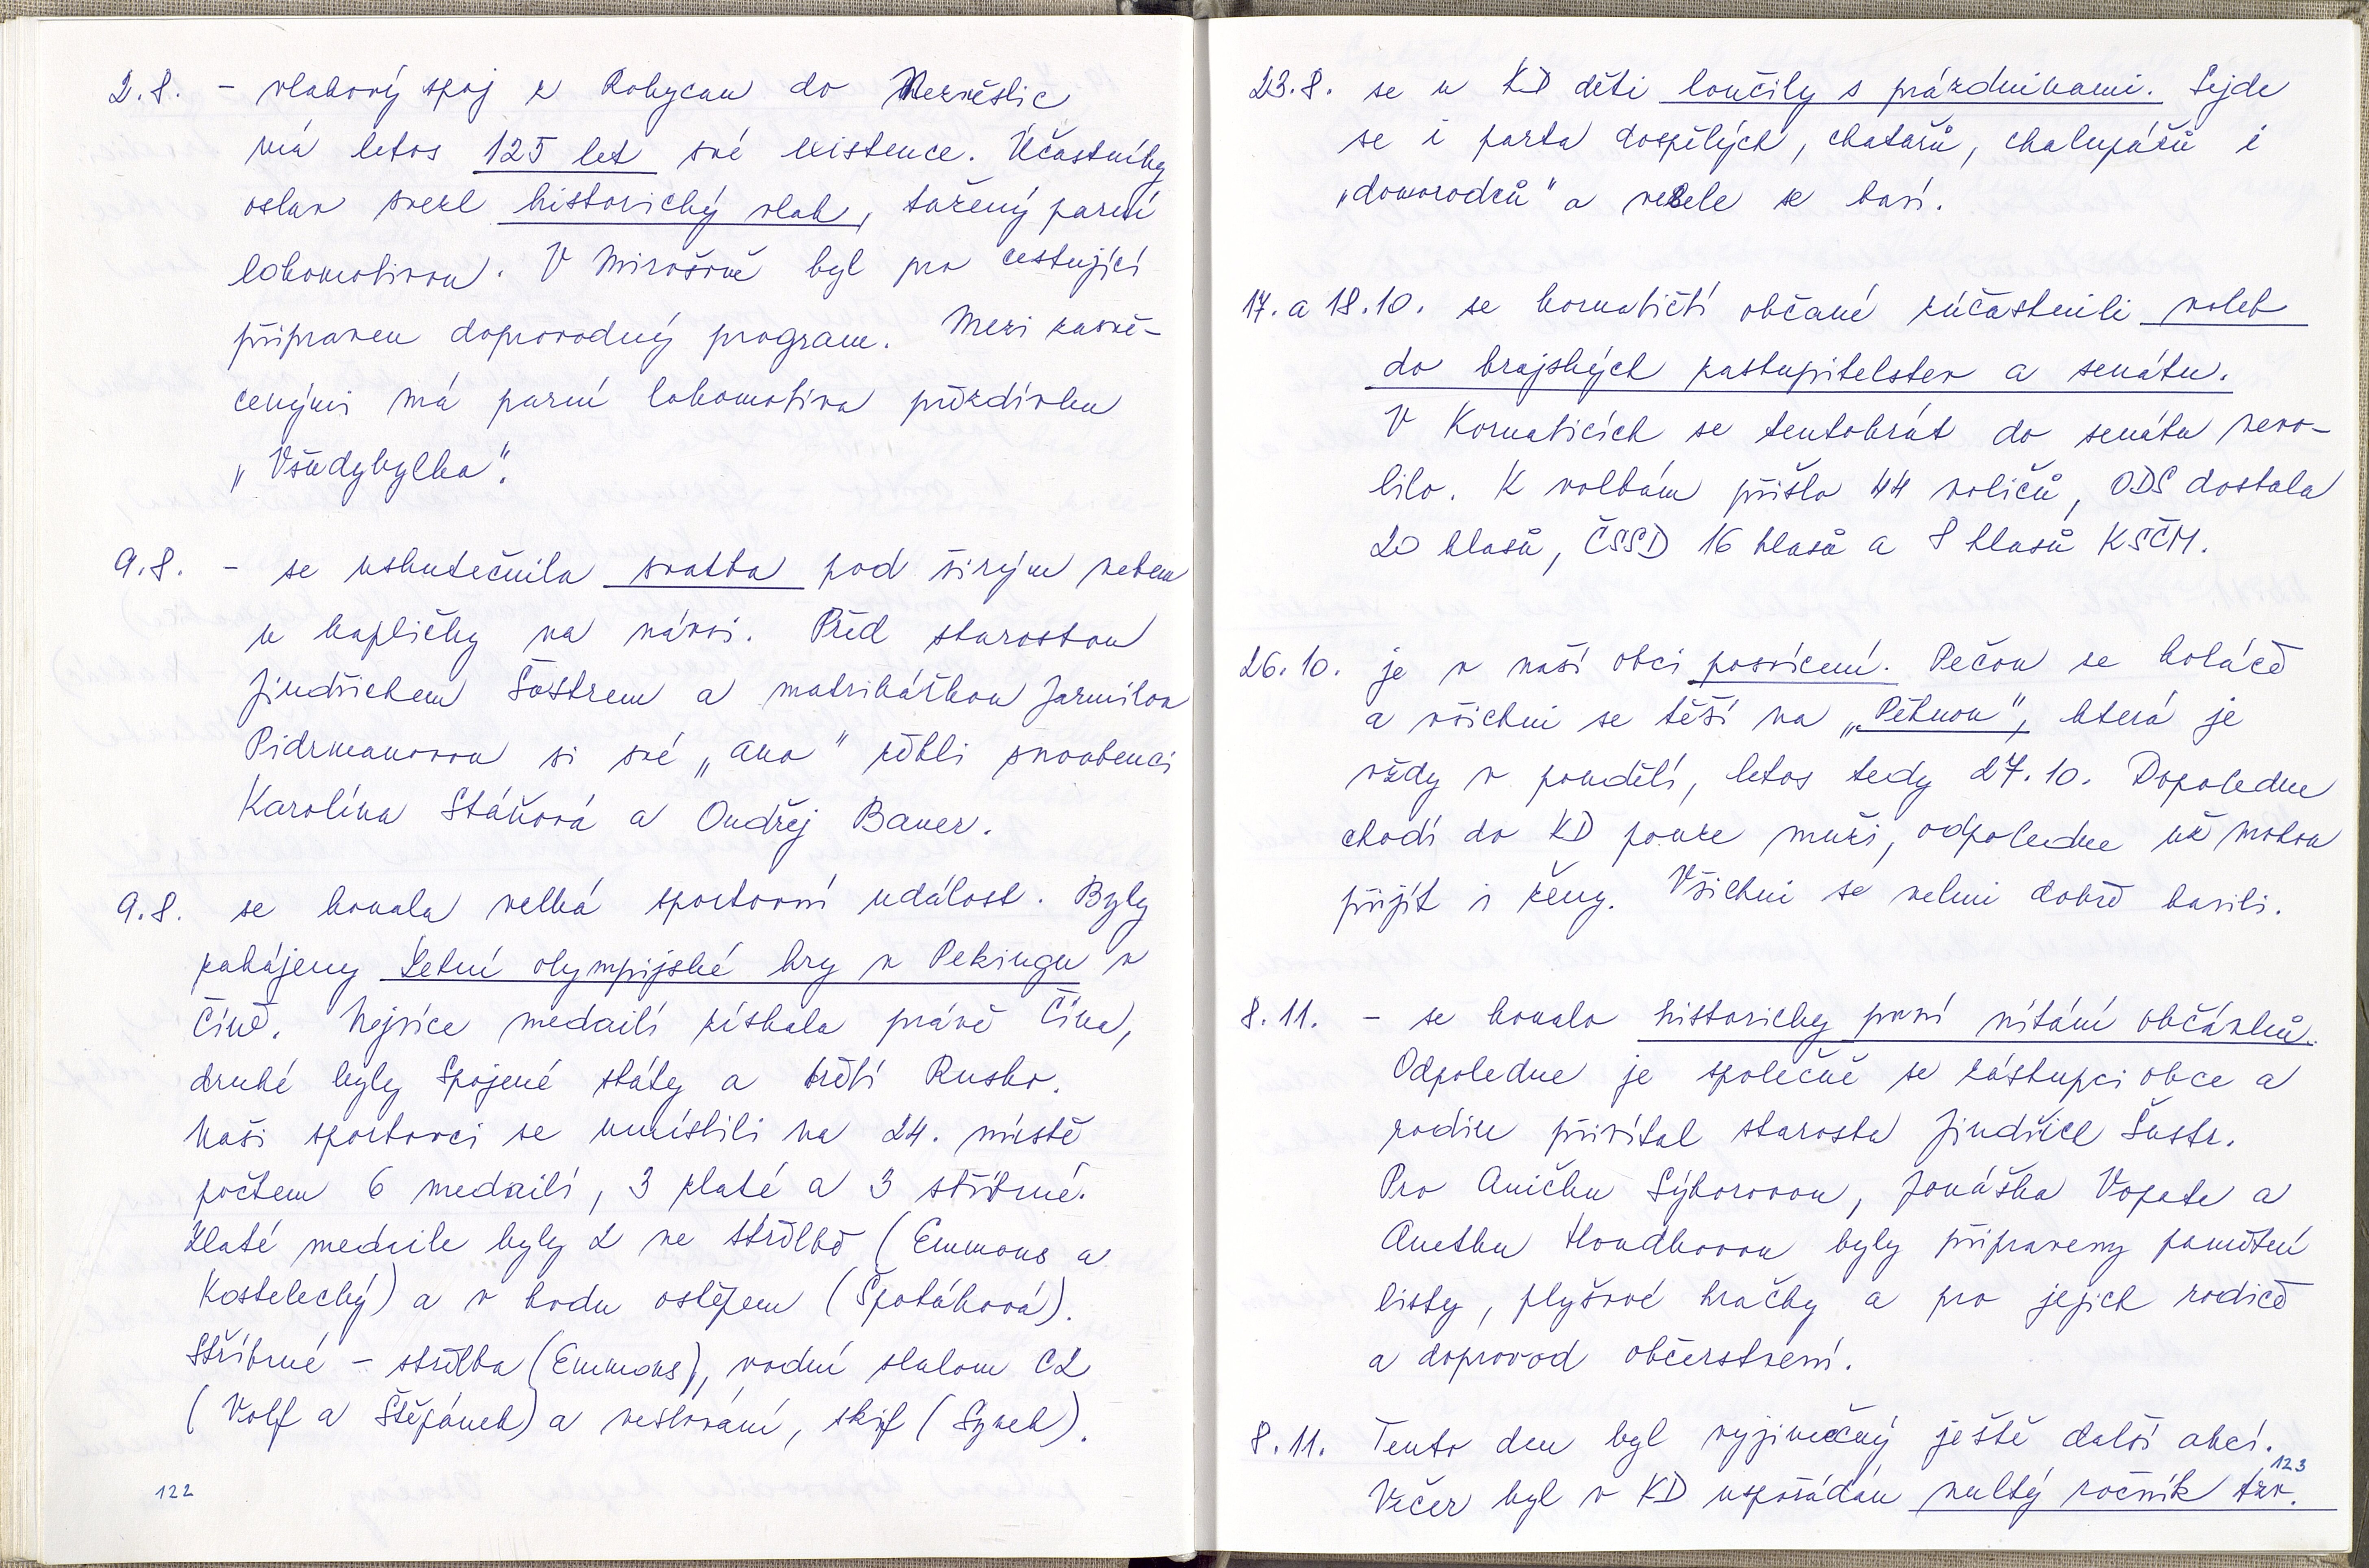 2.8. - vlakový spoj z Rokycan do Nezvěstic
má letos 125 let své existence. Účastníky
oslav svezl historický vlak, tažený parní
lokomotivou. V Mirošově byl pro cestující
připraven doprovodný program. Mezi zasvě-
cenými má parní lokomotiva přezdívku
„Všudybylka“.
9.8. - se uskutečnila svatba pod širým nebem
u kapličky na návsi. Před starostou
Jindřichem Šustrem a matrikářkou Jarmilou
Pidrmanovou si své „ano“ řekli snoubenci
Karolína Stáňová a Ondřej Bauer.
9.8. se konala velká sportovní událost. Byly
zahájeny Letní olympijské hry v Pekingu v
Číně. Nejvíce medailí získala právě Čína,
druhé byly Spojené státy a třetí Rusko.
Naši sportovci se umístili na 24. místě
počtem 6 medailí, 3 zlaté a 3 stříbrné.
Zlaté medaile byly 2 ve střelbě (Emmons a
Kostelecký) a v hodu oštěpem (Špotáková).
Stříbrné - střelba (Emmons), vodní slalom C2
(Volf a Štěpánek) a veslování, skif (Synek).
122
23.8. se u KD děti loučily s prázdninami. Sejde
se i parta dospělých, chatařů, chalupářů i
„domorodců“ a vesele se baví.
17. a 18.10. se kornatičtí občané zúčastnili voleb
do krajských zastupitelstev a senátu.
V Kornaticích se tentokrát do senátu nevo-
lilo. K volbám přišlo 44 voličů, ODS dostala
20 hlasů, ČSSD 16 hlasů a 8 hlasů KSČM.
26.10. je v naší obci posvícení. Pečou se koláče
a všichni se těší na „Pěknou“, která je
vždy v pondělí, letos tedy 27.10. Dopoledne
chodí do KD pouze muži, odpoledne už mohou
přijít i ženy. Všichni se velmi dobře bavili.
8.11. - se konalo historicky první vítání občánků.
Odpoledne je společně se zástupci obce a
rodin přivítal starosta Jindřich Šustr.
Pro Aničku Sýkorovou, Jonáška Vopate a
Anetku Houdkovou byly připraveny pamětní
listy, plyšové hračky a pro jejich rodiče
a doprovod občerstvení.
8.11. Tento den byl vyjimečný ještě další akcí.
Večer byl v KD uspořádán nultý ročník tzv.
123